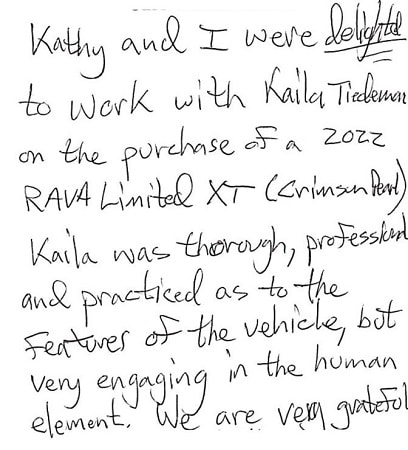 Kathy and I were delighted
to work with Kaila Tiedeman
on the purchase of a 2022
RAVA Limited XT (Crimson Pearl)
Kaila was thorough, professional
and practiced as to the
features of the vehicle, but
very engaging in the human
element. We are very grateful